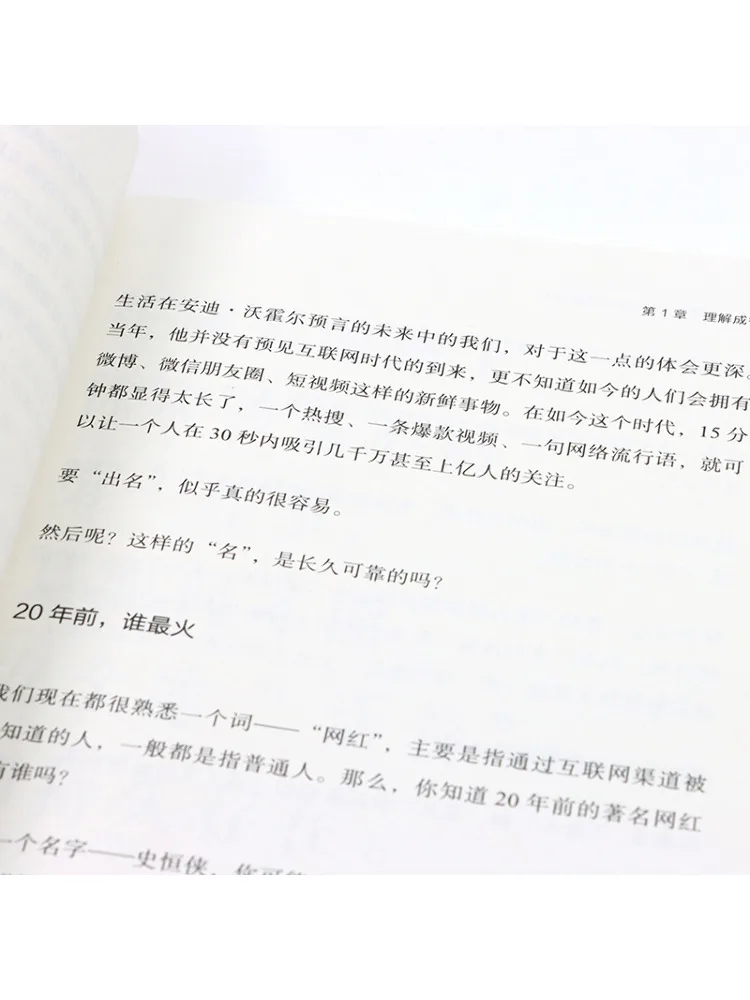 第 1 章 理解成
生活在安迪·沃霍尔预言的未来中的我们，对于这一点的体会更深。
当年，他并没有预见互联网时代的到来，更不知道如今的人们会拥有
微博、微信朋友圈、短视频这样的新鲜事物。在如今这个时代，15 分
钟都显得太长了，一个热搜、一条爆款视频、一句网络流行语，就可
以让一个人在 30 秒内吸引几千万甚至上亿人的关注。
要“出名”，似乎真的很容易。
然后呢？这样的“名”，是长久可靠的吗？
20 年前，谁最火
我们现在都很熟悉一个词——“网红”，主要是指通过互联网渠道被
知道的人，一般都是指普通人。那么，你知道 20 年前的著名网红
有谁吗？
一个名字——史恒侠，你可能